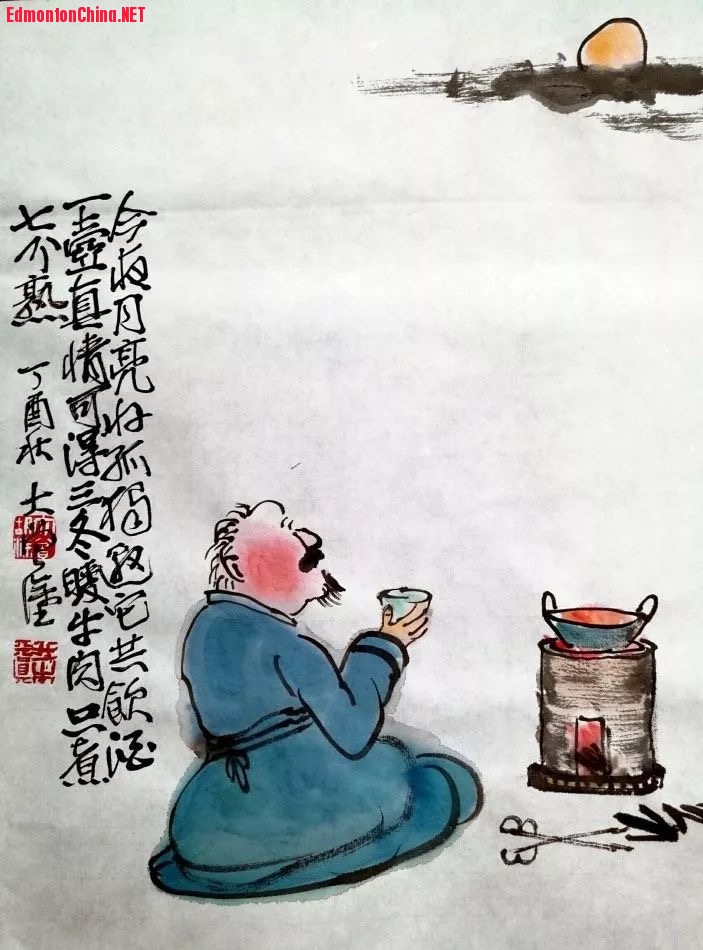 EdmontonChina.NET
今夜月亮好孤独邀它共飲酒
一壶真情可得三冬暖牛肉只煮
七分熟
丁酉秋